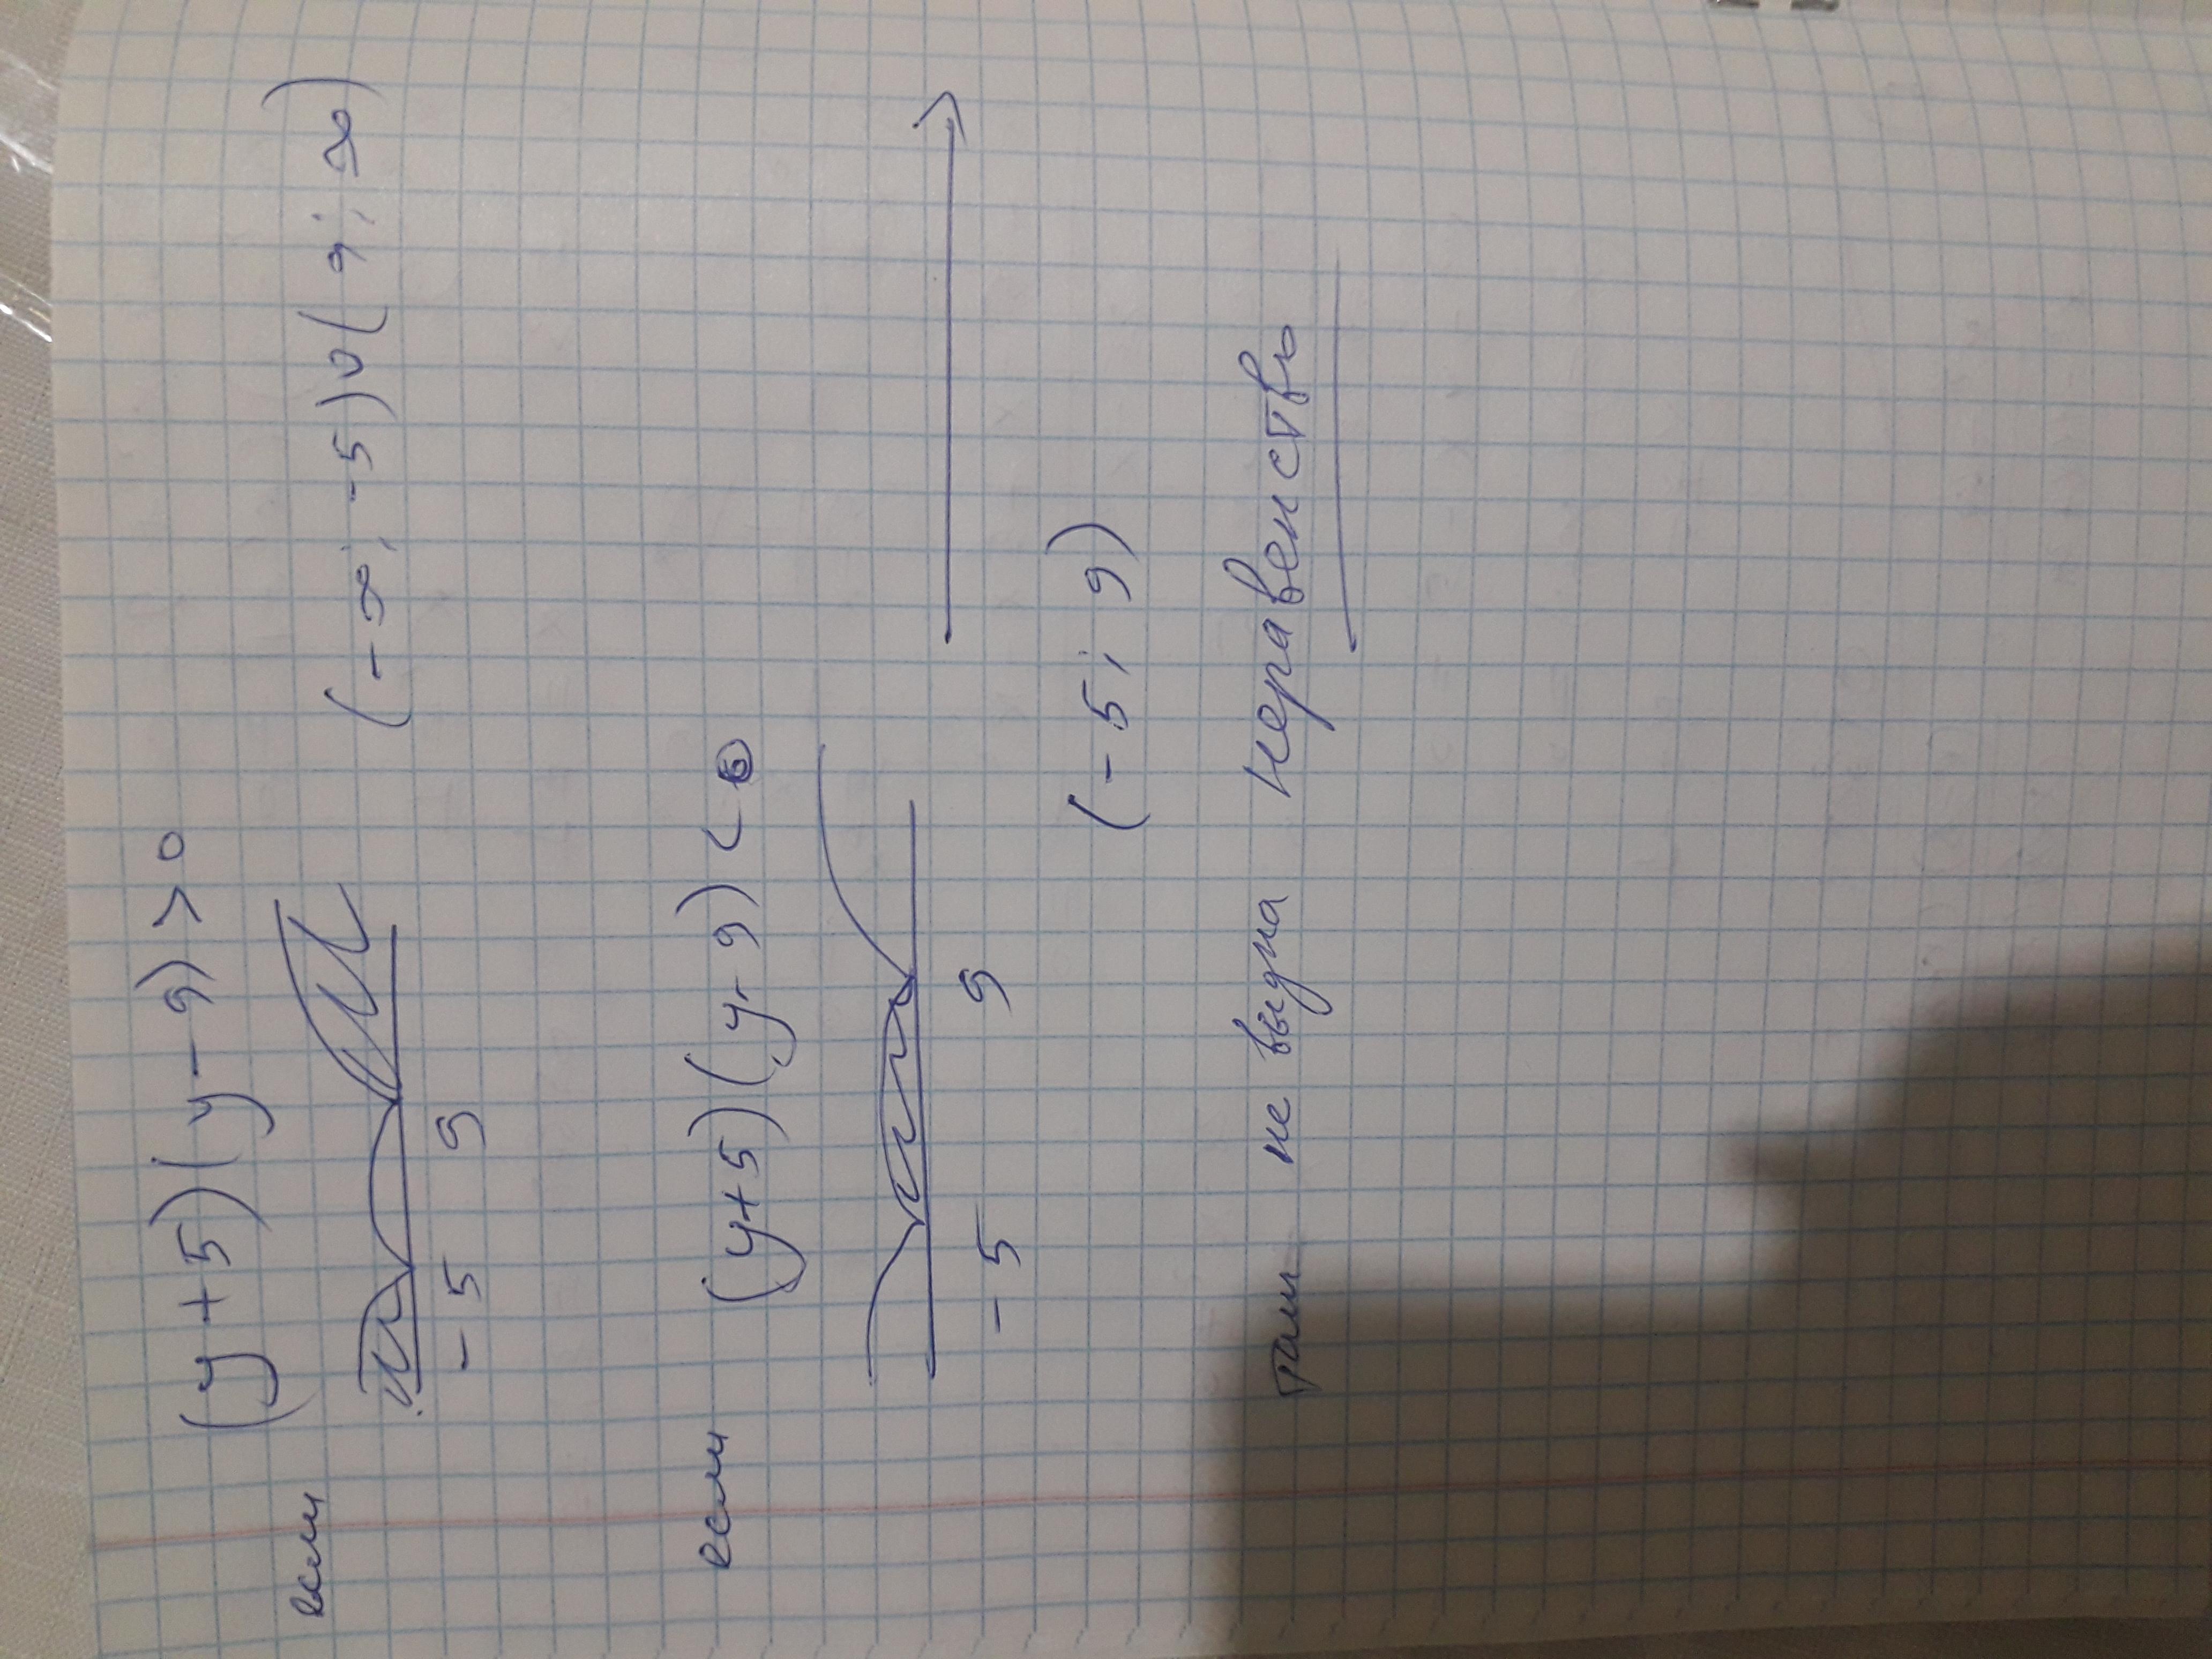 если (y+5)(y-9)>0
-5 9
(-∞; -5)∪(9; ∞)
если (y+5)(y-9)<0
-5 9
(-5; 9)
там не видна неравенствь